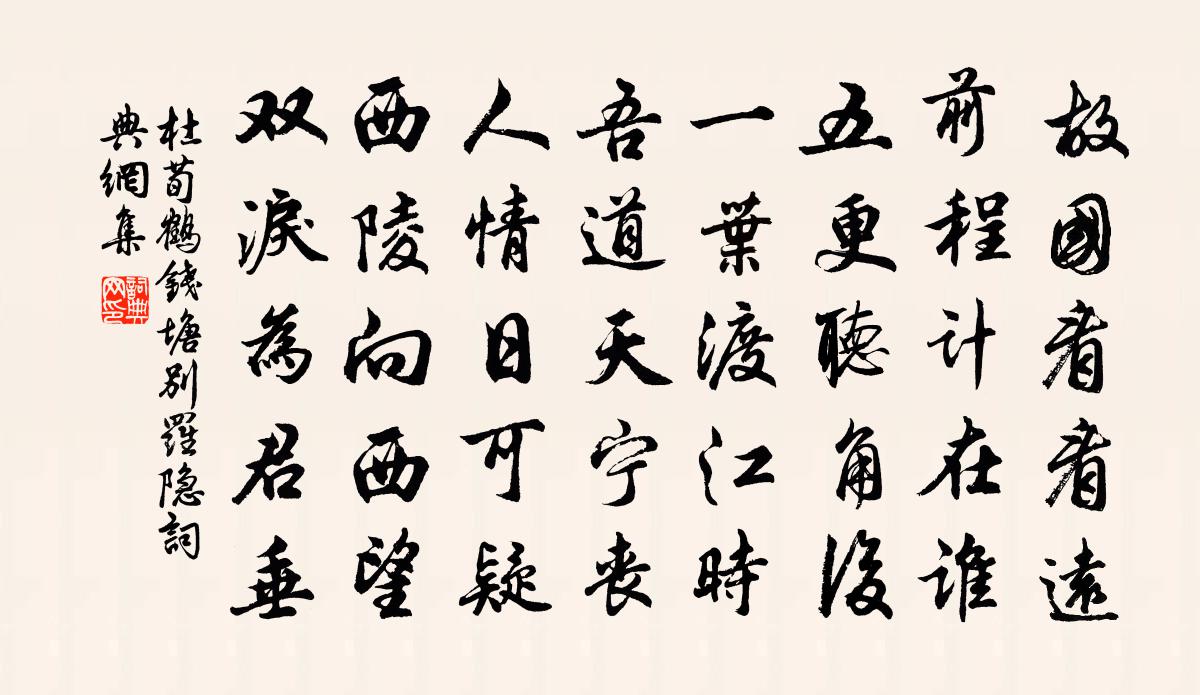 故國看看遠
前程计在谁
五更聽角後
一葉渡江時
吾道天宁丧
人情日可疑
西陵向西望
双淚為君垂
杜荀鶴錢塘别羅隐詞
典網集
詞典
网印